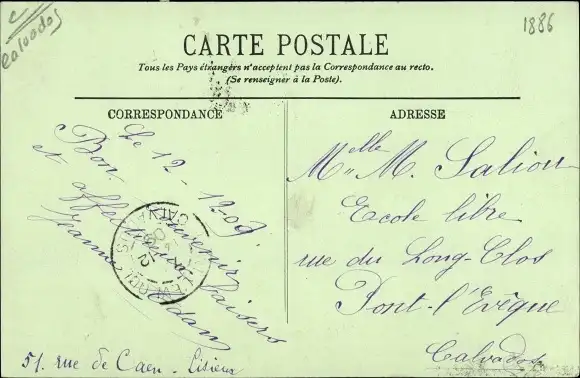 Calvados
1886
CARTE POSTALE
Tous les Pays étrangers n'acceptent pas la Correspondance au recto.
(Se renseigner à la Poste).
CORRESPONDANCE
Le 12-12-09
Bon souvenir
et affectueux baisers
Jeanne Adam
51. rue de Caen - Lisieux
CALVADOS
12
09
ADRESSE
Melle M. Saliou
Ecole libre
rue du Long-Clos
Pont-l'Evêque
Calvados